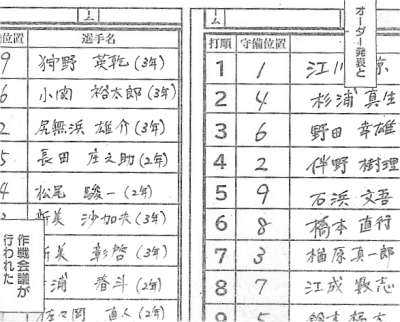 オーダー発表と
作戦会議が
行われた
ーム
位置 選手名
9 狩野 英乾 (3年)
6 小関 裕太郎 (3年)
2 尻無浜 雄介 (3年)
5 長田 庄之助 (2年)
4 松尾 駿一 (2年)
新美 沙加夫 (3年)
新美 彰啓 (3年)
浦 啓斗 (2年)
佐々岡 直人 (2年)
ーム
打順 守備位置
1 1 江川
2 4 杉浦 真生
3 6 野田 幸雄
4 2 伴野 樹理
5 9 石浜 文吾
6 8 橋本 直行
7 3 楢原 真一郎
8 7 江成 敦志
9 5